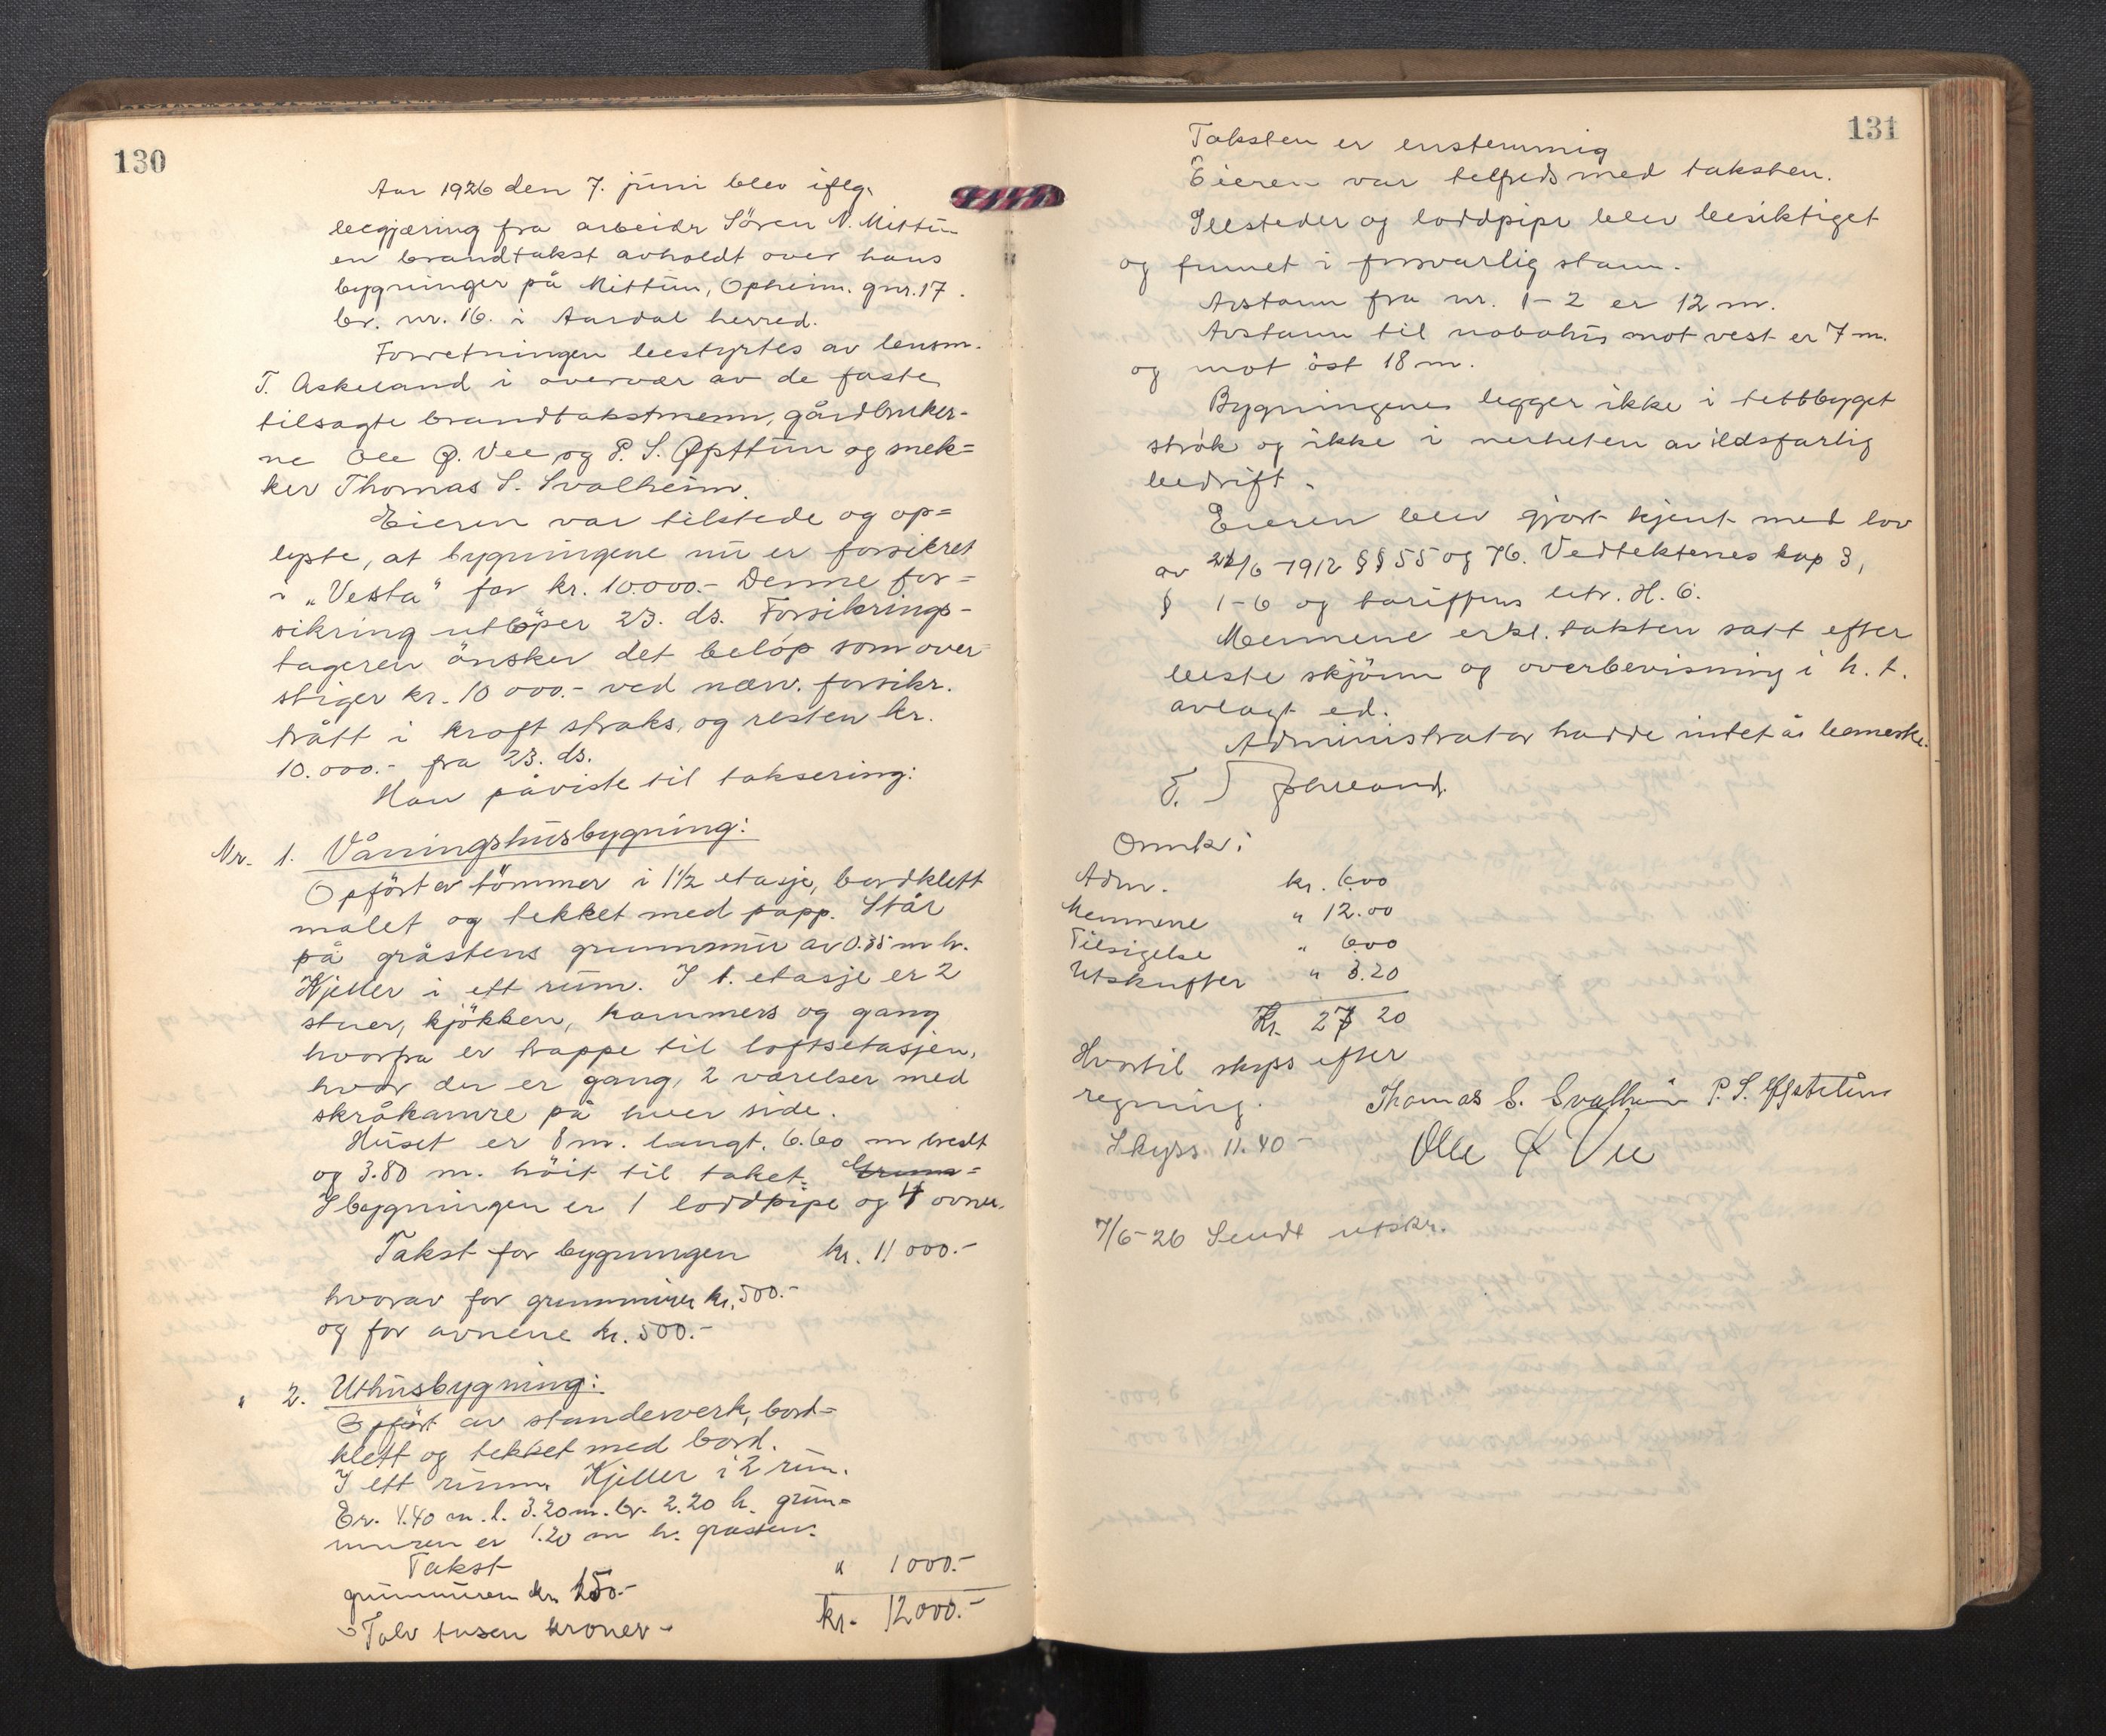 130
Aar 1926 den 7. juni blev iflg.
begjæring fra arbeidr Sören N. Mittun
en brandtakst avholdt over hans
bygninger på Mittun, Opheim. gnr. 17.
br. nr. 16. i Aardal herred.
Forretningen bestyrtes av lensm.
T. Askeland i overvær av de faste
tilsagte brandtakstmenn, gårdbruker-
ne Ole Ø. Vee og P. S. Øpsttun og snek=
ker Thomas S. Svalheim.
Eieren var tilstede og op=
lyste, at bygningene nu er forsikret
i "Vesta" for kr. 10.000.- Denne for=
sikring utlöper 23. ds. Forsikrings-
tageren önsker det beløp som over
stiger kr. 10 000.- ved nærv. forsikr.
trått i kraft straks, og resten kr.
10.000.- fra 23. ds.
Han påviste til taksering:
Nr. 1. Våningshusbygning:
Opfört av tömmer i 1½ etasje, bordklett
malet og tekket med papp. Står
på gråstens grunnmur av 0.35 m h.
Kjeller i ett rum. I 1. etasje er 2
stuer, kjökken, kammers og gang
hvorfra er trappe til loftsetasjen,
hvor der er gang, 2 værelser med
skråkamre på hver side.
Huset er 8 m. langt. 6.60 m bredt
og 3.80 m. höit til taket. Grunn=
I bygningen er 1 loddpipe og 4 ovner.
Takst for bygningen kr. 11 000.-
hvorav for grunnmuren kr. 500.-
og for ovnene kr. 500.-
" 2. Uthusbygning:
Opfört av standerverk, bord=
klett og tekket med bord.
I ett rum. Kjeller i 2 rum.
Er. 4.40 m. l. 3.20 m. br. 2.20 h. grun=
muren er 1.20 m h. gråsten.
Takst " 1000.-
grunnmuren kr. 150.-
- Tolv tusen kroner - kr. 12000.-
131
Taksten er enstemmig
Eieren var tilfreds med taksten.
Ildsteder og loddpipe blev besiktiget
og funnet i forsvarlig stann.
Avstann fra nr. 1-2 er 12 m.
Avstann til nabohus mot vest er 7 m.
og mot öst 18 m.
Bygningene legger ikke i tettbyget
strøk og ikke i nerheten av ildsfarlig
bedrift.
Eieren blev gjort kjent med lov
av 21/6-1912 §§ 55 og 76. Vedtektenes kap 3,
§ 1-6 og tariffens litr. H. 6.
Mennene erkl. taksten satt efter
beste skjönn og overbevisning i h. t.
avlagt ed.
Administrator hadde intet å bemerke.
T. Askeland
Omk:
Adm. kr. 6.00
Mennene " 12.00
Tilsigelse " 6.00
Utskrifter " 3.20
Kr. 27 20
Hvortil skyss efter
regning.
Thomas S. Svalheim P. S. Øpsttun
Skyss. 11.40 -
Olle Ø Vee
7/6-26 Sendt utskr.